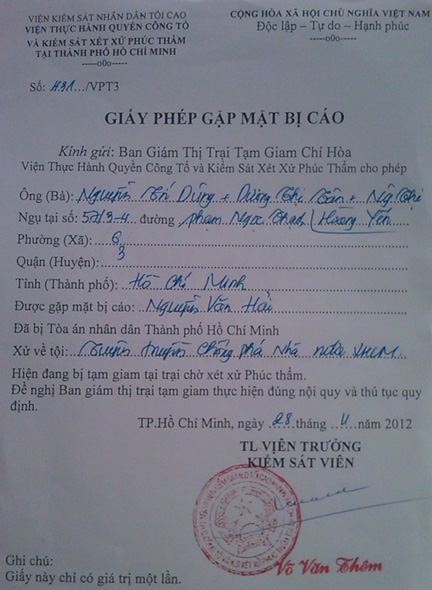 VIỆN KIỂM SÁT NHÂN DÂN TỐI CAO
VIỆN THỰC HÀNH QUYỀN CÔNG TỐ
VÀ KIỂM SÁT XÉT XỬ PHÚC THẨM
TẠI THÀNH PHỐ HỒ CHÍ MINH
-----o0o-----
CỘNG HÒA XÃ HỘI CHỦ NGHĨA VIỆT NAM
Độc lập – Tự do – Hạnh phúc
-----o0o-----
Số: 431.../VPT3
GIẤY PHÉP GẶP MẶT BỊ CÁO
Kính gửi: Ban Giám Thị Trại Tạm Giam Chí Hòa
Viện Thực Hành Quyền Công Tố và Kiểm Sát Xét Xử Phúc Thẩm cho phép
Ông (Bà): Nguyễn Trí Dũng + Dương Thị Tân +
Ngụ tại số: 57/3-4 đường Phạm Ngọc Thạch Hoàng Yến
Phường (Xã): 6
Quận (Huyện): 3
Tỉnh (Thành phố): Hồ Chí Minh
Được gặp mặt bị cáo: Nguyễn Văn Hải
Đã bị Tòa án nhân dân Thành phố Hồ Chí Minh
Xử về tội: Tuyên truyền chống phá Nhà nước
Hiện đang bị tạm giam tại trại chờ xét xử Phúc thẩm.
Đề nghị Ban giám thị trại tạm giam thực hiện đúng nội quy và thủ tục quy
định.
TP.Hồ Chí Minh, ngày 28 tháng 11 năm 2012
TL VIỆN TRƯỞNG
KIỂM SÁT VIÊN
Võ Văn Thêm
Ghi chú:
Giấy này chỉ có giá trị một lần.